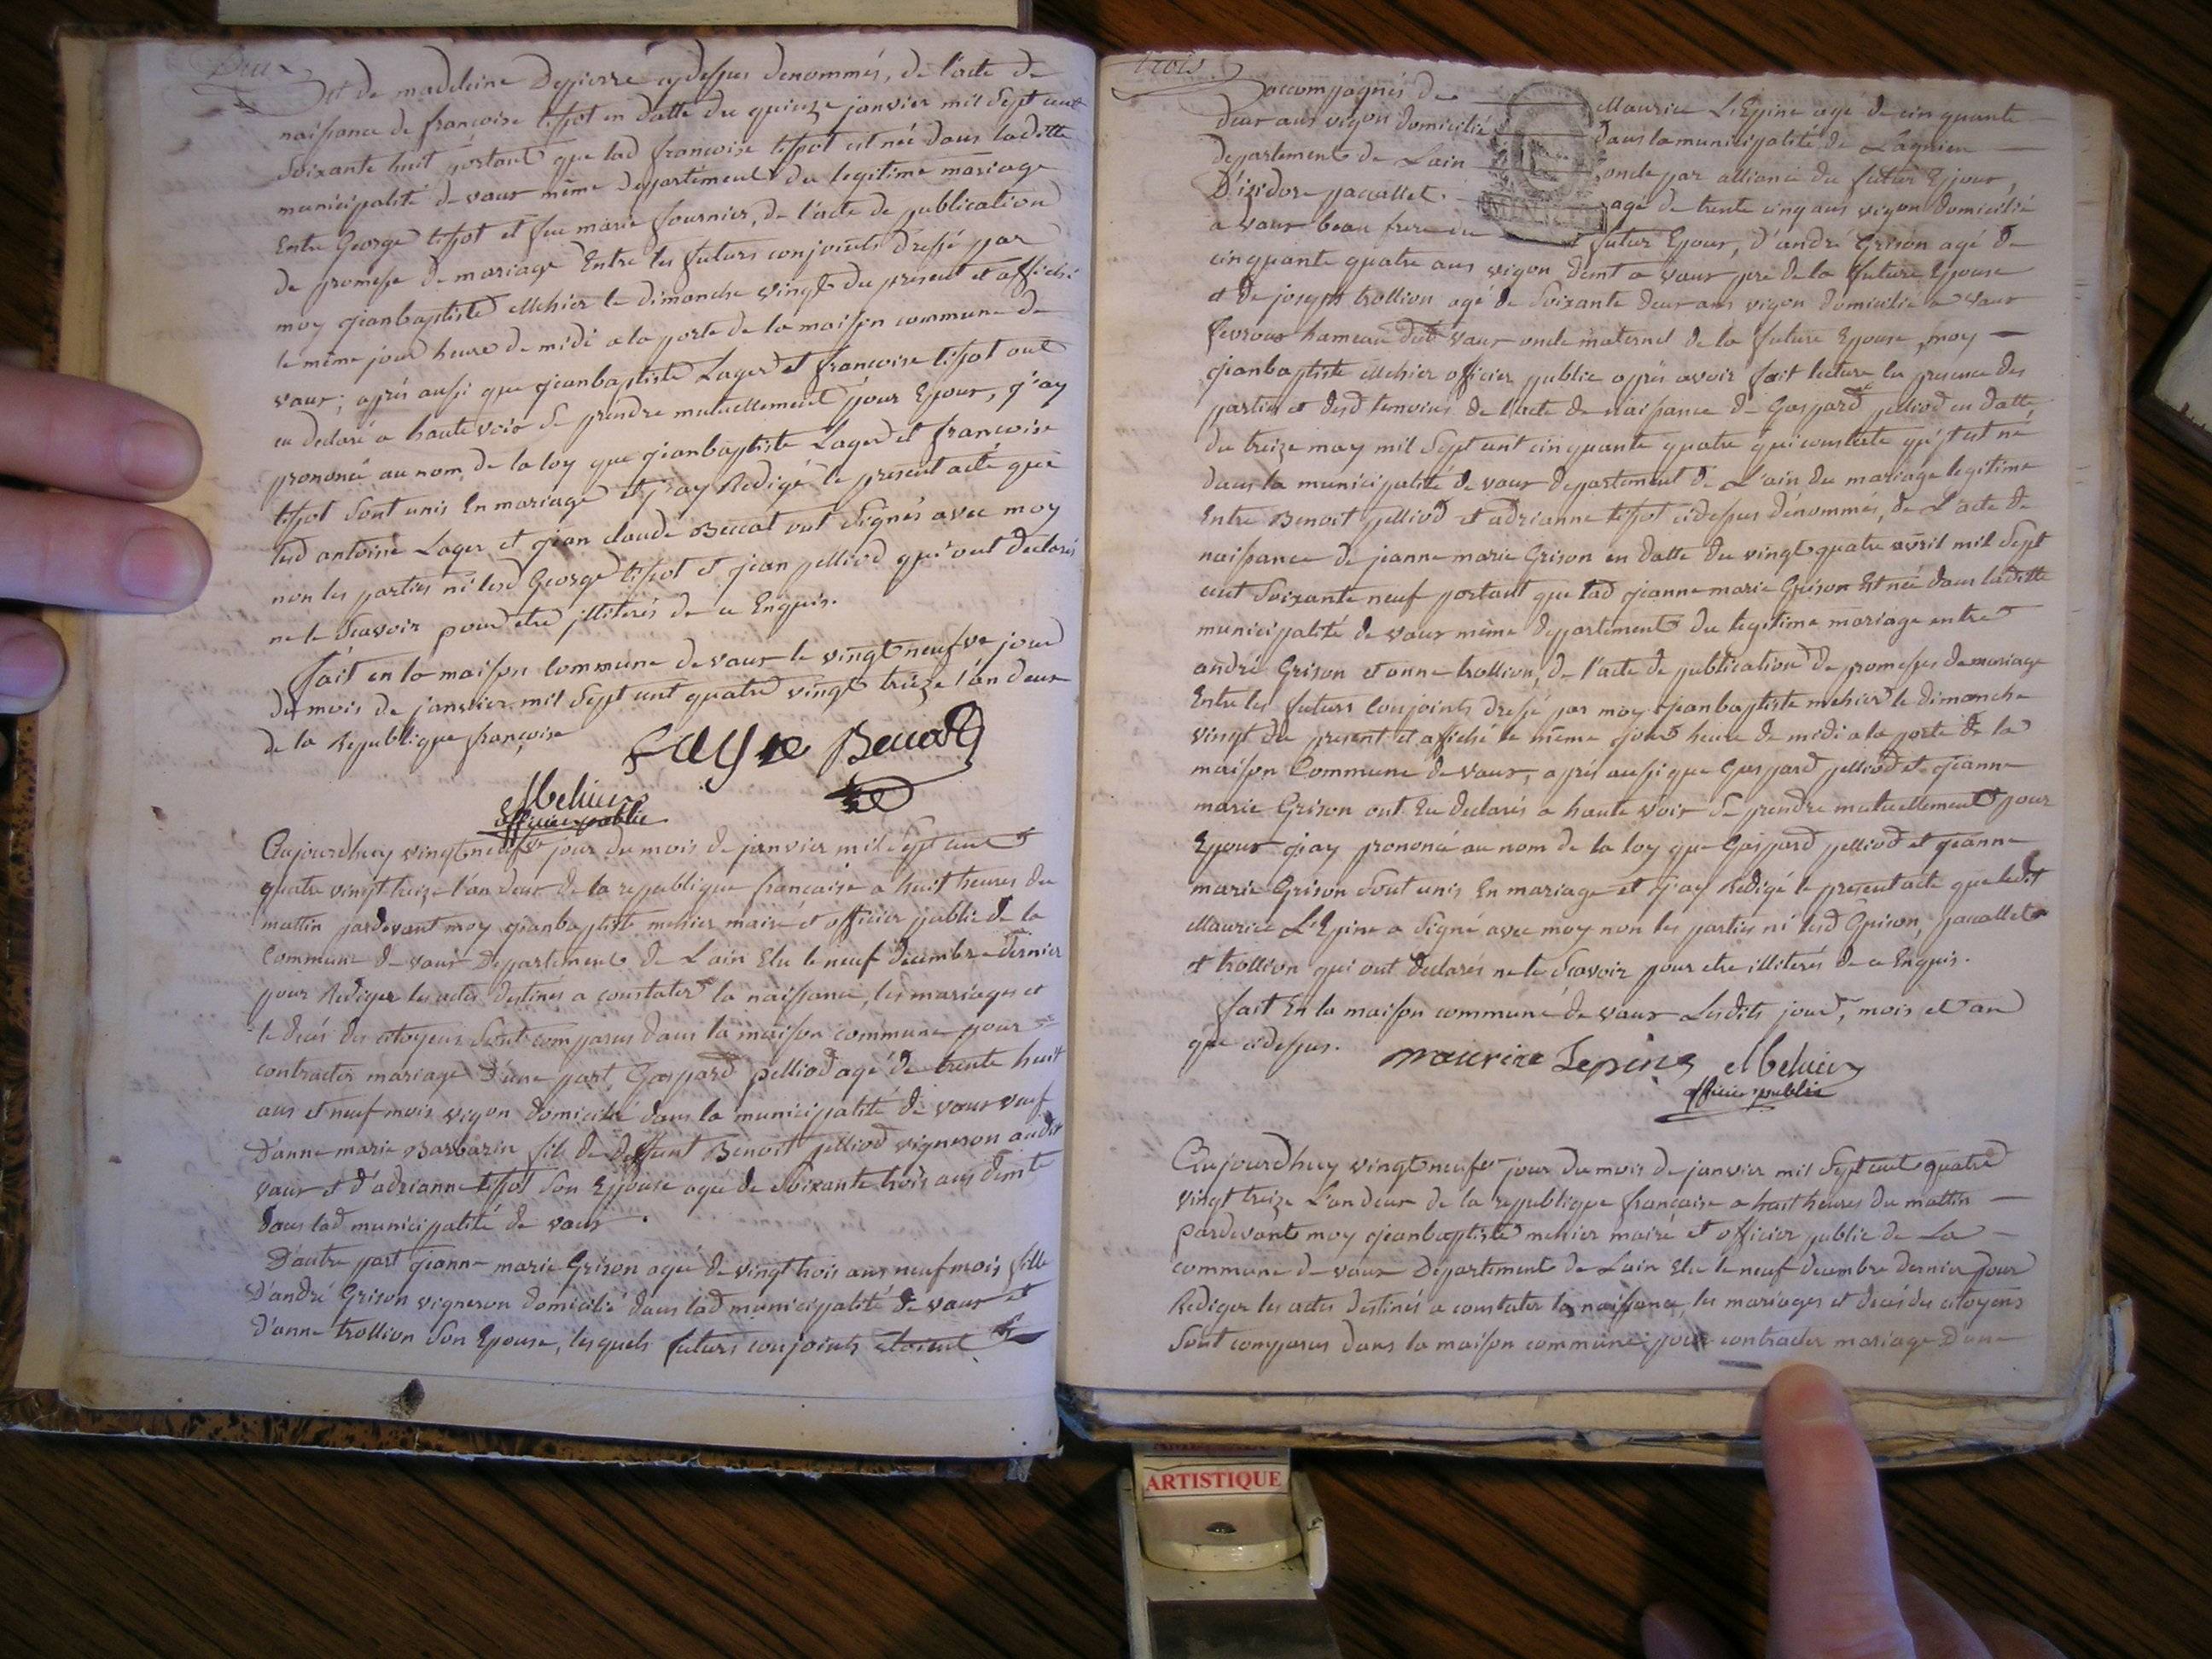 Deux
et de madeleine Depierre cy dessus denommés, de l'acte de
naissance de francoise tissot en datte du quinze janvier mil sept cent
soixante huit portant que lad francoise tissot est née dans laditte
municipalité de vaux même departement du legitime mariage
Entre George tissot et feu marie fournier, de l'acte de publication
de promesse de mariage Entre les futurs conjoints dressé par
moy jeanbaptiste Mehier le dimanche vingt du present et affiché
le même jour heure de midi a la porte de la maison commune de
vaux; après aussi que jeanbaptiste Lager et francoise tissot ont
eu declaré a haute voix se prendre mutuellement pour Epoux, j'ay
prononcé au nom de la loy que jeanbaptiste Lager et francoise
tissot sont unis En mariage et j'ay Redigé le present acte que
lesd antoine Lager et jean claude Beccat ont signés avec moy
non les parties ni lesd George tissot et jean pelliod qui ont declarés
ne le scavoir pour etre illiterés de ce Enquis.
fait en la maison Commune de vaux le vingt neufve jour
du mois de janvier mil sept cent quatre vingt treize l'an deux
de la Republique françoise
Mehier
officier public
Aujourdhuy vingt neufve jour du mois de janvier mil sept cent
quatre vingt treize l'an deux de la republique francaise a huit heures du
mattin pardevant moy jeanbaptiste mehier maire et officier public de la
Commune de vaux departement de Lain Elu le neuf decembre dernier
pour Rediger les actes destinés a constater la naissance, les mariages et
le decés des citoyens sont comparus dans la maison commune pour
contracter mariage D'une part, Gaspard pelliod agé de trente huit
ans et neuf mois vigon domicilié dans la municipalité de vaux veuf
D'anne marie Barbarin fils de deffunt Benoit pelliod vigneron audit
vaux et d'adrianne tissot son Epouse agée de soixante trois ans demte
dans lad municipalité de vaux.
D'autre part jeanne marie Grison agée de vingt trois ans neuf mois fille
D'andré Grison vigneron domicilié dans lad municipalité de vaux et
D'anne trollion son Epouse, lesquels futurs conjoints etoient
trois
accompagnés de Maurice L'Epine agé de cinquante
deux ans vigon domicilié dans la municipalité de Lagnieu
departement de Lain oncle par alliance du futur Epoux,
D'izidore pacallet agé de trente cinq ans vigon domicilié
a vaux beau frere du futur Epoux, d'andré Grison agé de
cinquante quatre ans vigon demt a vaux pere de la future Epouse
et de joseph trollion agé de soixante deux ans vigon domicilié a vaux
fevroux hameau dud vaux oncle maternel de la future Epouse, moy
jeanbaptiste Mehier officier public après avoir fait lecture en presence des
parties et desd temoins de l'acte de naissance de Gaspard pelliod en datte
du treize may mil sept cent cinquante quatre qui constate qu'il est né
dans la municipalité de vaux departement de L'ain du mariage legitime
Entre Benoit pelliod et adrianne tissot cidessus dénommés, de L'acte de
naissance de jeanne marie Grison en datte du vingt quatre avril mil sept
cent soixante neuf portant que lad jeanne marie Grison Est née dans laditte
municipalité de vaux même departement du legitime mariage entre
andré Grison et anne trollion, de l'acte de publication de promesses de mariage
Entre les futurs Conjoints dressé par moy jeanbaptiste mehier le dimanche
vingt du present et affiché le même jour heure de midi a la porte de la
maison Commune de vaux, après aussi que Gaspard pelliod et jeanne
marie Grison ont Eu declarés a haute voix se prendre mutuellement pour
Epoux j'ay prononcé au nom de la loy que Gaspard pelliod et jeanne
marie Grison sont unis En mariage et j'ay Redigé le present acte que ledit
Maurice L'Epine a signé avec moy non les parties ni lesd Grison, pacallet
et trollion qui ont declarés ne le scavoir pour etre illiterés de ce Enquis.
fait En la maison commune de vaux Lesdits jour, mois et an
que cidessus.
maurice Lepine Mehier
officier public
Aujourdhuy vingt neufve jour du mois de janvier mil sept cent quatre
vingt treize L'an deux de la republique française a huit heures du mattin
pardevant moy jeanbaptiste mehier maire et officier public de La
commune de vaux Departement de Lain Elu le neuf decembre dernier pour
Rediger les actes destinés a constater la naissance, les mariages et decés des citoyens
sont comparus dans la maison commune pour contracter mariage D'une
ARTISTIQUE